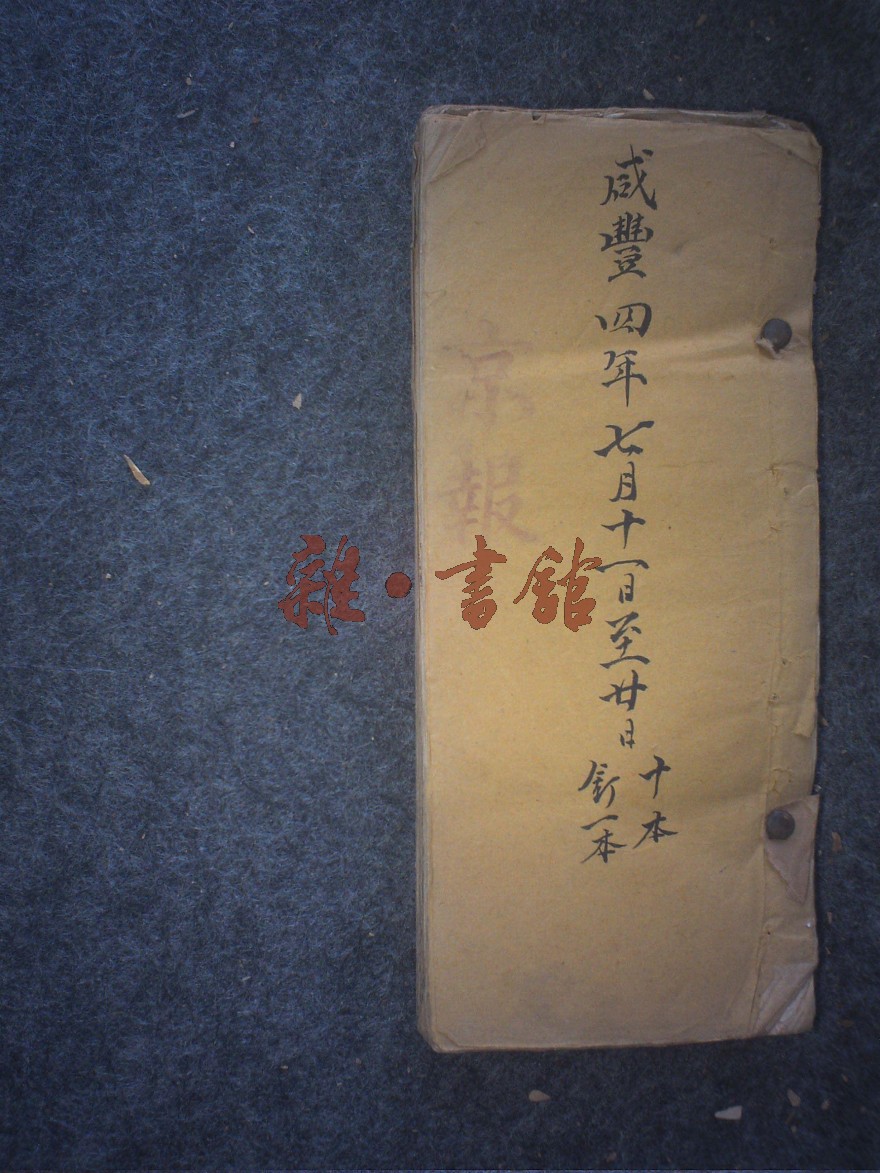 咸豐四年七月十一日至廿日
十本
釘一本
京報
雜·書館